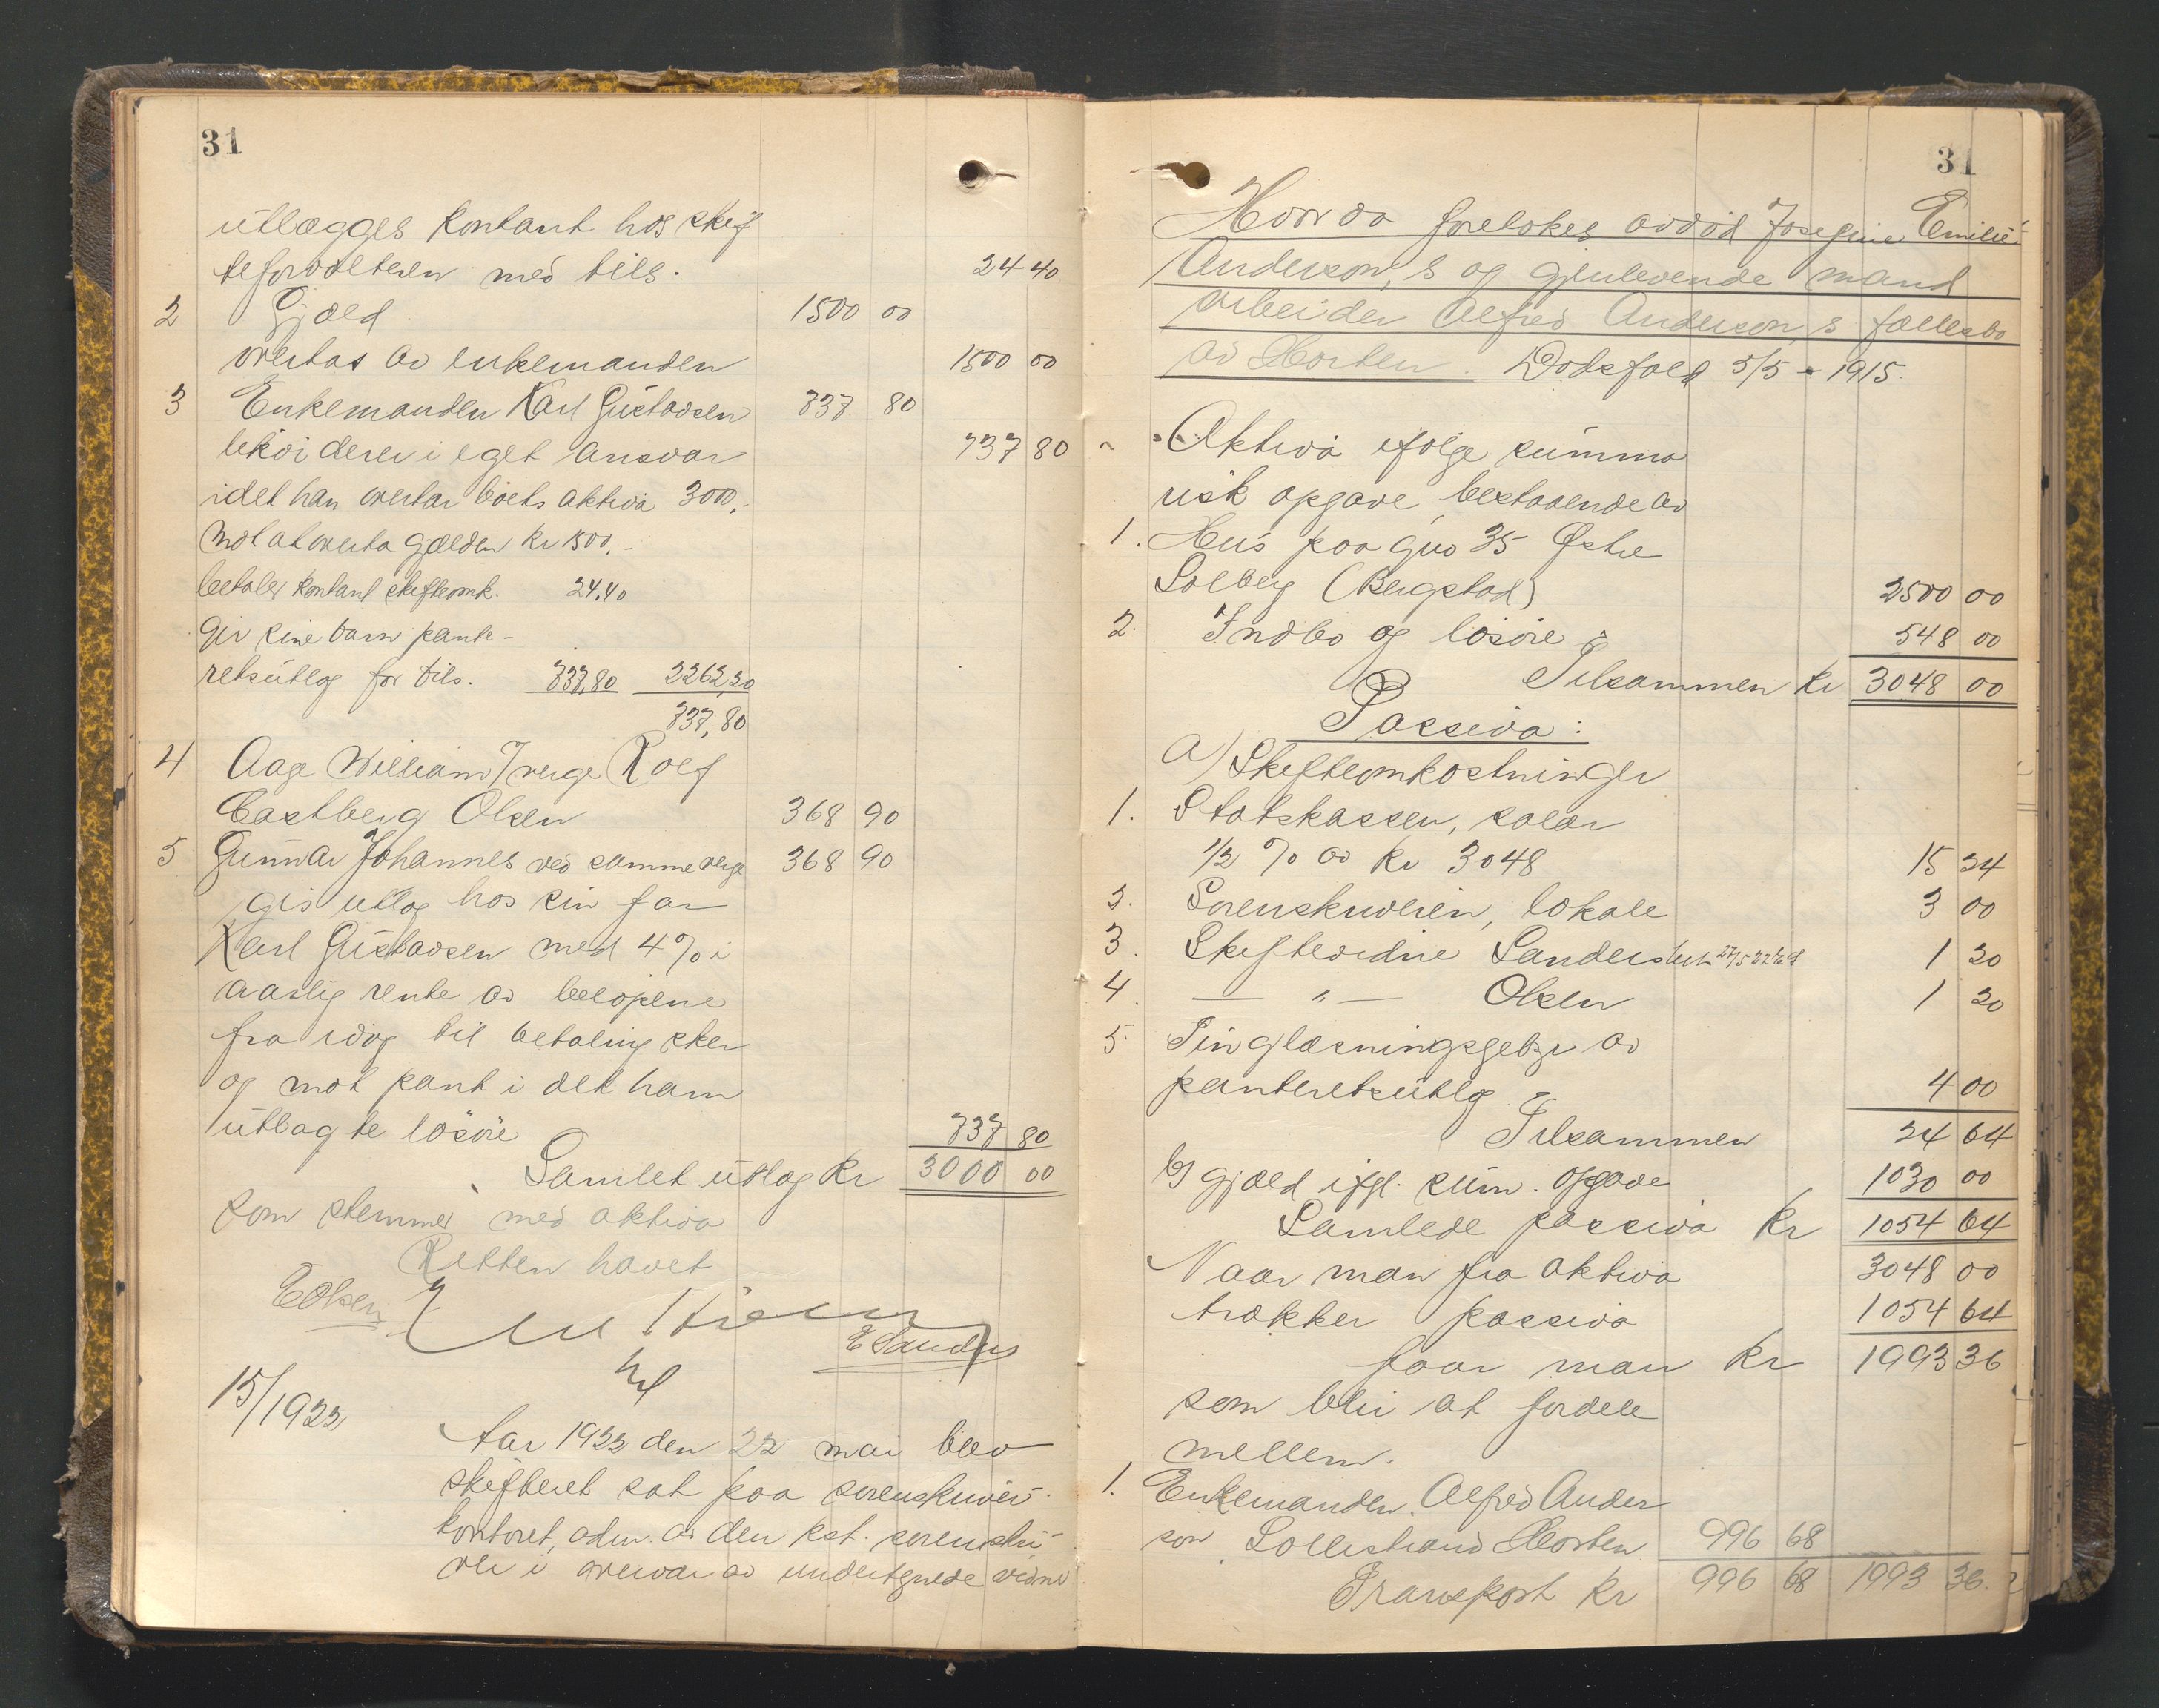 31
utlægges kontant hos skif
teforvalteren med tils. 24 40
2 Gjæld 1500 00
overtas av enkemanden 1500 00
3 Enkemanden Karl Gustavsen 737 80
likviderer i eget ansvar 737 80
idet han overtar boets aktiva 3000,-
mot at overta gjælden kr 1500,-
betaler kontant skifteomk. 24,40
gir sine barn pante-
retsutlæg for tils. 737,80 2262,20
737,80
4 Aage William / verge Rolf
Castberg Olsen 368 90
5 Gunnar Johannes ved samme verge 368 90
gis utlæg hos sin far
Karl Gustavsen med 4 % i
aarlig rente av beløpene
fra idag til betaling sker
og mot pant i det ham
utlagte løsøre 737 80
Samlet utlæg Kr 3000 00
som stemmer med aktiva
Retten hævet
EOlsen
ESanders
15/1922
Aar 1922 den 22 mai blev
skifteret sat paa sorenskriver-
kontoret, adm. av den kst. sorenskri-
ver i overvær av undertegnede vidner
31
Hvor da foretokes avdød Josefine Emilie
Anderson,s og gjenlevende mand
arbeider Alfred Anderson,s fællesbo
av Horten. Dødsfald 5/5 - 1915.
Aktiva ifølge summa
risk opgave bestaaende av
1. Hus paa gno 35 Østre
Solberg (Bergstad) 2500 00
2. Indbo og løsøre 548 00
Tilsammen kr 3048 00
Passiva:
a) Skifteomkostninger
1. Statskassen, salær
1/2 % av kr 3048 15 24
2. Sorenskriveren, lokale 3 00
3. Skiftevidne Sanders 1 20
4. — " — Olsen 1 20
5 Tinglæsningsgebyr av
panteretsutlæg 4 00
Tilsammen 24 64
b) gjæld ifgl. sum. opgave 1030 00
Samlede passiva Kr 1054 64
Naar man fra aktiva 3048 00
trækker passiva 1054 64
faar man kr 1993 36
som blir at fordele
mellem.
1. Enkemanden Alfred Ander
son, Sollistrand Horten 996 68
Transport kr 996 68 1993 36